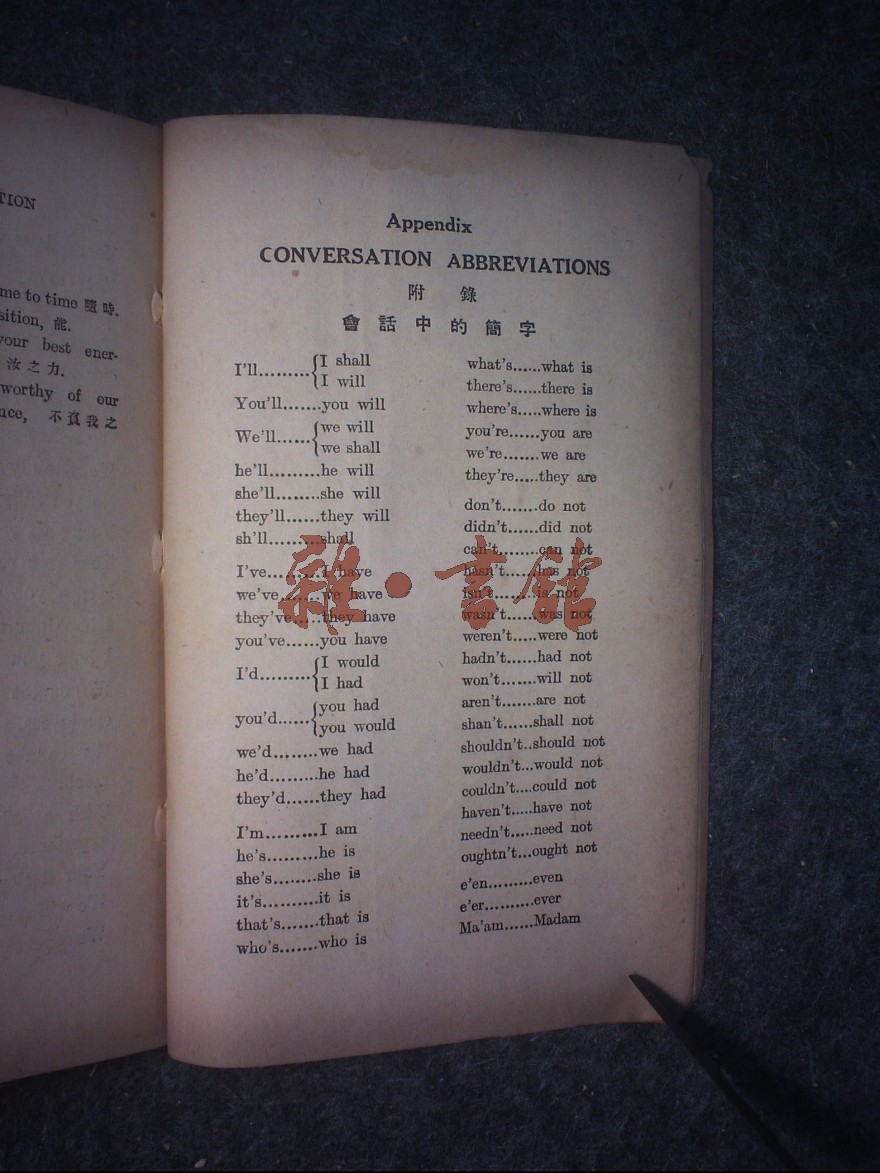 TION
me to time 隨時.
sition, 能.
your best ener-
汝之力.
worthy of our
nce, 不負我之
Appendix
CONVERSATION ABBREVIATIONS
附 錄
會 話 中 的 簡 字
I'll.........{I shall
{I will
You'll.......you will
We'll......{we will
{we shall
he'll.........he will
she'll........she will
they'll......they will
sh'll.........shall
I've.........I have
we've.......we have
they've.....they have
you've......you have
I'd.........{I would
{I had
you'd......{you had
{you would
we'd........we had
he'd.........he had
they'd......they had
I'm.........I am
he's.........he is
she's........she is
it's..........it is
that's.......that is
who's.......who is
what's......what is
there's.....there is
where's.....where is
you're......you are
we're.......we are
they're.....they are
don't.......do not
didn't......did not
can't........can not
hasn't......has not
isn't........is not
wasn't......was not
weren't.....were not
hadn't......had not
won't.......will not
aren't......are not
shan't......shall not
shouldn't..should not
wouldn't...would not
couldn't....could not
haven't.....have not
needn't.....need not
oughtn't...ought not
e'en.........even
e'er..........ever
Ma'am......Madam
雜·書館